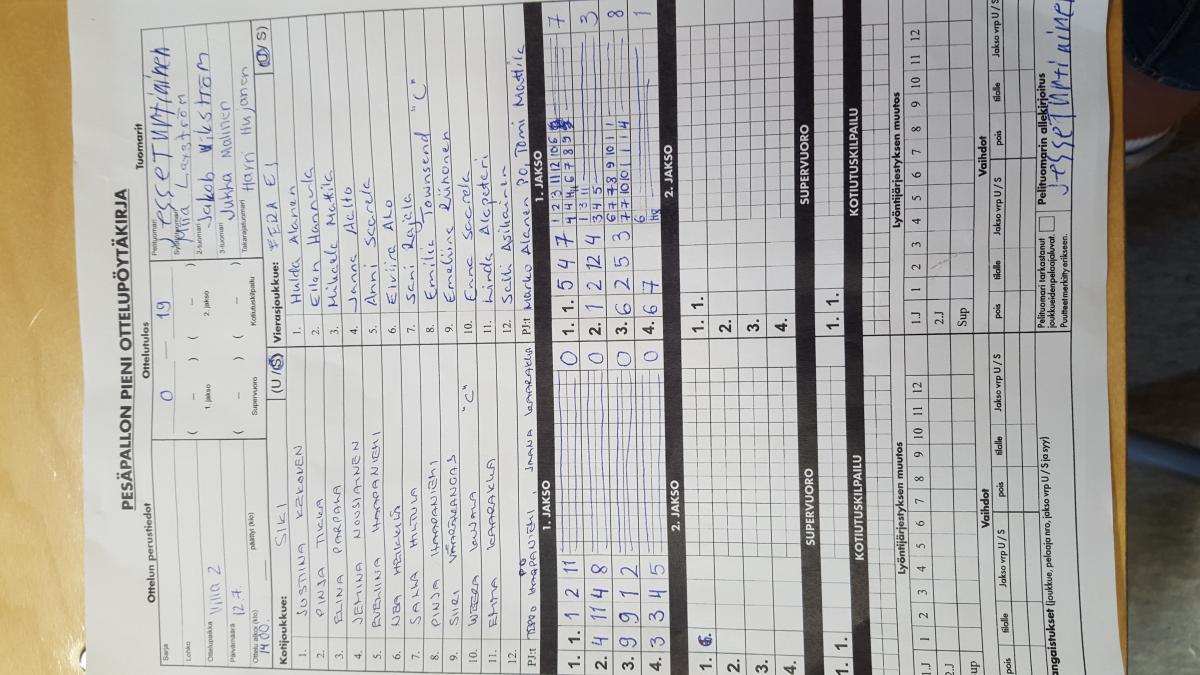 PESÄPALLON PIENI OTTELUPÖYTÄKIRJA
Ottelun perustiedot
Ottelutulos
Tuomarit
Sarja
0 — 19
Pelituomari
Jesse Turtiainen
Lohko
( – ) ( – )
1. jakso
2. jakso
Syöttötuomari
Miia Laxström
Ottelupaikka Villa 2
2-tuomari
Jakob Vikström
Päivämäärä 12.7.
( – )
3-tuomari
Jukka Malinen
Ottelu alkoi (klo) 14.00.
päättyi (klo)
Supervuoro
Kotiutuskilpailu
Takarajatuomari
Harri Hujanen
Kotijoukkue: SiKi (U/S)
1. JUSTIINA KEKONEN
2. PINJA TIKKA
3. ELINA PARPALA
4. JEMINA NOUSIAINEN
5. EVELIINA HAAPANIEMI
6. NEA HEIKKILÄ
7. SALLA HILTULA
8. PINJA HAAPANIEMI
9. SIIRI VÄÄRÄKANGAS
10. WEERA "C"
11. EMMA KAARAKKA
12.
PJ:t TOPO HAAPANIEMI PO, JAANA KAARAKKA
Vierasjoukkue: FERA E1 (U/S)
1. Hulda Alanen
2. Ellen Hannula
3. Mikaela Mattila
4. Janna Aalto
5. Anni Saarela
6. Elviira Aho
7. Sani Rajala
8. Emilia Townsend "C"
9. Emeliina Riihonen
10. Enna Saarela
11. Linda Alapeteri
12. Salli Asikainen
PJ:t Marko Alanen PO, Tomi Mattila
1. JAKSO
1. 1. 1 2 11 0
2. 4 11 4 8 0
3. 9 9 1 2 0
4. 3 3 4 5 0
1. JAKSO
1. 1. 5 4 7 7
2. 1 12 4 3
3. 6 2 5 3 8
4. 6 7 1
2. JAKSO
1.
2.
3.
4.
2. JAKSO
1. 1.
2.
3.
4.
SUPERVUORO
1. 1.
SUPERVUORO
1. 1.
KOTIUTUSKILPAILU
KOTIUTUSKILPAILU
Lyöntijärjestyksen muutos
1 2 3 4 5 6 7 8 9 10 11 12
Lyöntijärjestyksen muutos
1.J 1 2 3 4 5 6 7 8 9 10 11 12
2.J
Sup
Vaihdot
pois tilalle Jakso vrp U / S pois tilalle Jakso vrp U / S
Vaihdot
pois tilalle Jakso vrp U / S pois tilalle Jakso vrp U / S
angaistukset (joukkue, pelaaja nro, jakso vrp U / S ja syy)
Pelituomari tarkastanut
joukkueiden pelaajaluvat.
Puutteet merkitty erikseen.
Pelituomarin allekirjoitus
Jesse Turtiainen